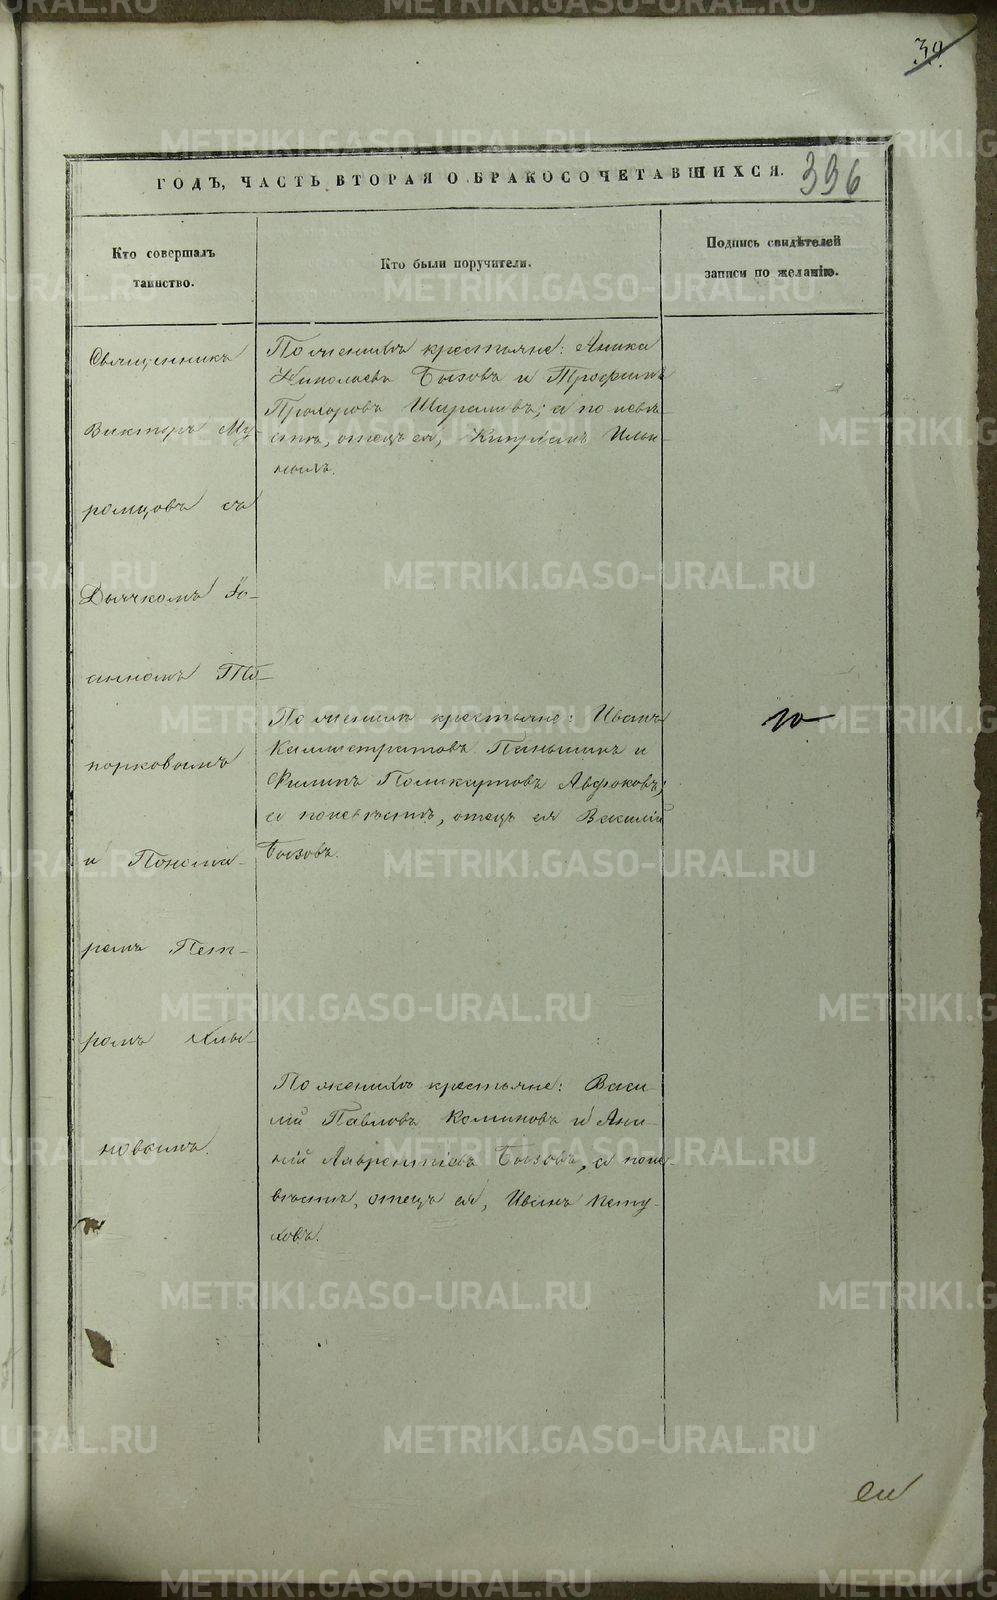 39.
ГОДЪ, ЧАСТЬ ВТОРАЯ О БРАКОСОЧЕТАВШИХСЯ.
396
Кто совершалъ
таинство.
Кто были поручители.
Подпись свидѣтелей
записи по желанію.
Священникъ
Викторъ Му-
ромцовъ съ
Дьячкомъ Іо-
анномъ
и Понома-
ремъ Пет-
ромъ Хлы-
новымъ.
По женихѣ крестьяне: Аника
Николаевъ Бызовъ и Трофимъ
Прохоровъ а по невѣ-
стѣ, отецъ ея, Кипріянъ Ильи-
ныхъ.
По женихѣ крестьяне: Иванъ
Каллистратовъ Паньшинъ и
Филипъ Поликарповъ
а по невѣстѣ, отецъ ея Василій
Бызовъ.
По женихѣ крестьяне: Васи-
лій Павловъ Коминовъ и Ани-
кій Лаврентіевъ Бызовъ, а по не-
вѣстѣ, отецъ ея, Иванъ Пету-
ховъ.
METRIKI.GASO-URAL.RU